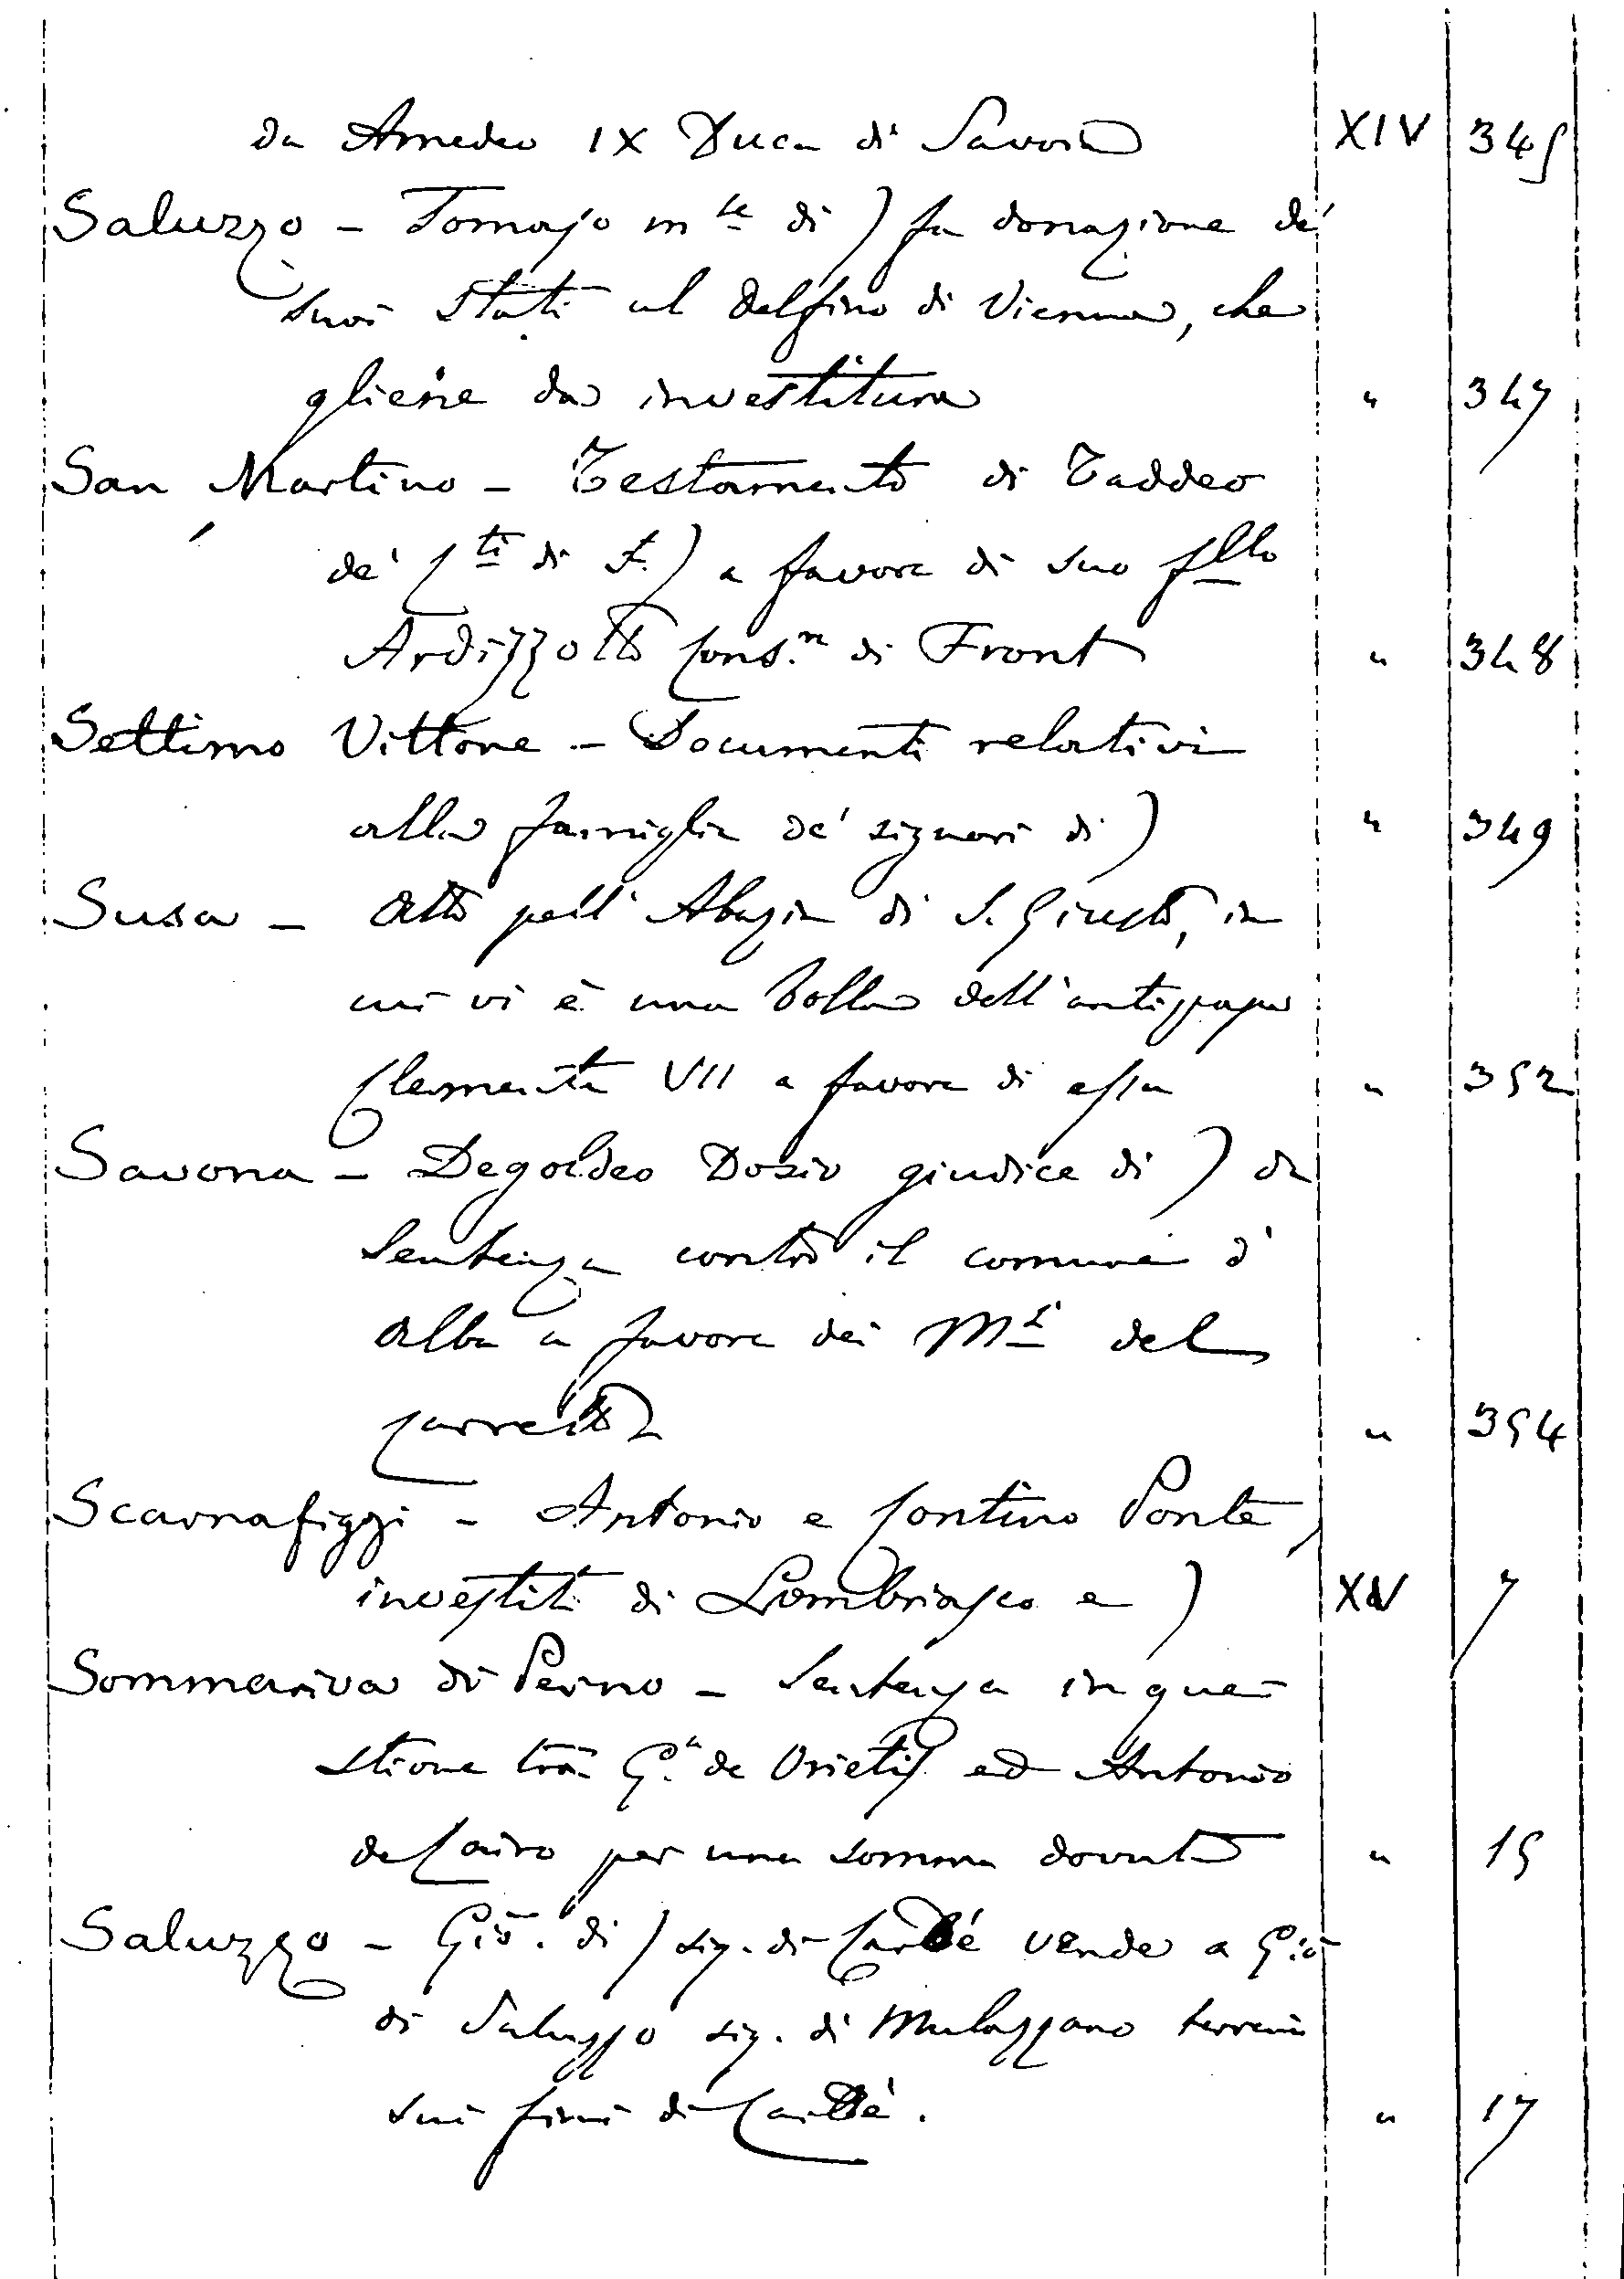 da Amedeo IX Duca di Savoia XIV 345
Saluzzo - Tomaso m.se di ) fa donazione de'
suoi Stati al Delfino di Vienna, che
gliene da investitura " 347
San Martino - Testamento di Taddeo
de' Cti di S.) a favore di suo fllo
Ardizzotto Cons.re di Front " 348
Settimo Vittone - Documenti relativi
alla famiglia de' signori di ) " 349
Susa - Atto pell' Abazia di S. Giusto, in
cui vi è una bolla dell'antipapa
Clemente VII a favore di essa " 352
Savona - Degoldeo Dosio giudice di ) da
Sentenza contro il comune d'
Alba a favore dei Msi del
Carretto " 354
Scarnafiggi - Antonio e Contino Ponte,
investiti di Lombriasco e ) XV 7
Sommariva di Perno - Sentenza in que-
stione tra G. de Orietis ed Antonio
de Cairo per una somma dovuta " 15
Saluzzo - Gio. di ) sig. di Cardé vende a Gio
di Saluzzo sig. di Mulazzano terreni
sui fini di Cardé. " 17